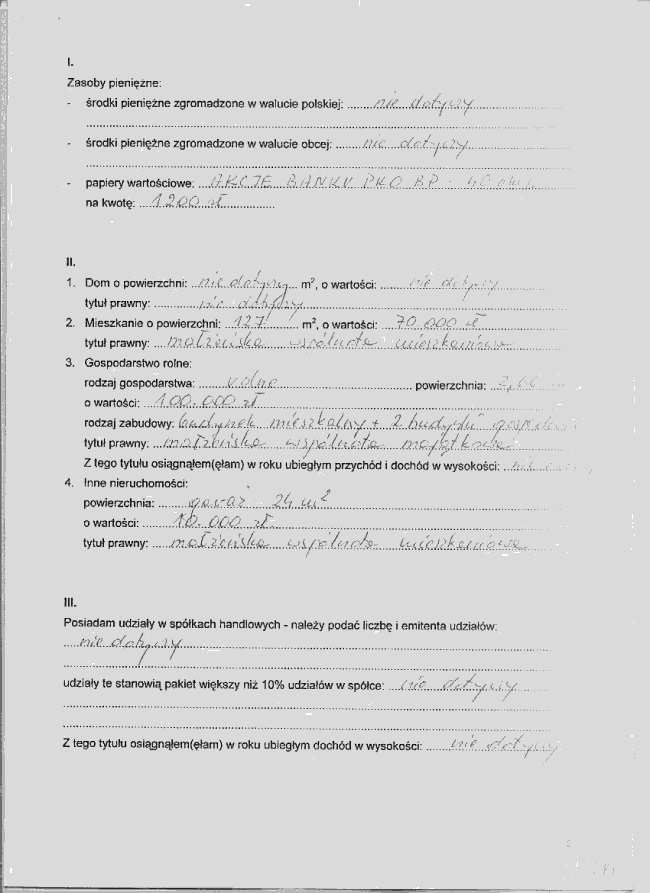 I.
Zasoby pieniężne:
- środki pieniężne zgromadzone w walucie polskiej: nie dotyczy
- środki pieniężne zgromadzone w walucie obcej: nie dotyczy
- papiery wartościowe: AKCJE BANKU PKO BP - 40
na kwotę: 1200 zł
II.
1. Dom o powierzchni: nie dotyczy m², o wartości: nie dotyczy
tytuł prawny: nie dotyczy
2. Mieszkanie o powierzchni: 127 m², o wartości: 70.000 zł
tytuł prawny: małżeńska wspólnota mieszkaniowa
3. Gospodarstwo rolne:
rodzaj gospodarstwa: rolne powierzchnia:
o wartości: 100.000 zł
rodzaj zabudowy: budynek mieszkalny + 2 budynki
tytuł prawny: małżeńska wspólnota majątkowa
Z tego tytułu osiągnąłem(ęłam) w roku ubiegłym przychód i dochód w wysokości: nie
4. Inne nieruchomości:
powierzchnia: garaż 24 m²
o wartości: 10.000 zł
tytuł prawny: małżeńska wspólnota mieszkaniowa
III.
Posiadam udziały w spółkach handlowych - należy podać liczbę i emitenta udziałów:
nie dotyczy
udziały te stanowią pakiet większy niż 10% udziałów w spółce: nie dotyczy
Z tego tytułu osiągnąłem(ęłam) w roku ubiegłym dochód w wysokości: nie dotyczy